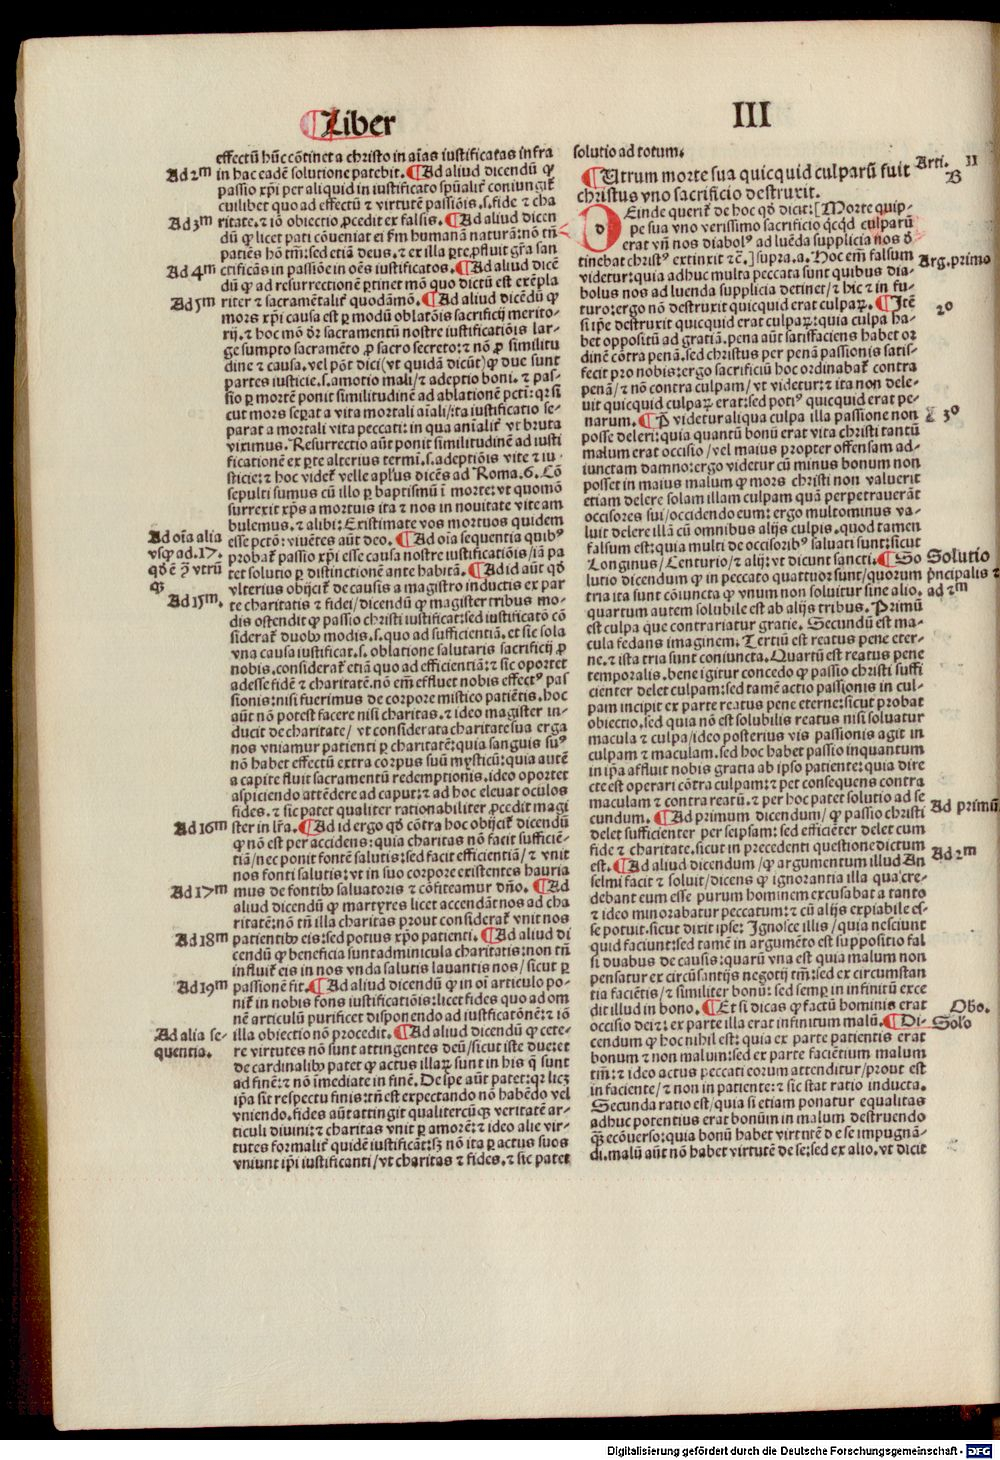 ¶Liber
III
effectū hūc cōtinet a christo in aīas iustificatas infra
Ad 2m in hac eadē solutione patebit. ¶Ad aliud dicendū ꝙ
passio xp̄i per aliquid in iustificato sp̄ualr̄ coniungit̄
cuilibet quo ad effectū ⁊ virtutē passiōis .s. fide ⁊ cha
Ad 3m ritate. ⁊ iō obiectio ꝓcedit ex falsis. ¶Ad aliud dicen
dū ꝙ licet pati cōueniat ei ẜm humanā naturā: nō tn̄
patiēs hō tm̄: sed etiā deus. ⁊ ex illa ꝑte ꝓfluit gr̄a san
Ad 4m ctificās in passiōe in oēs iustificatos. ¶Ad aliud dicē
dū ꝙ ad resurrectionē ꝑtinet mō quo dictū est exēpla
Ad 5m riter ⁊ sacramētalit̄ quodāmō. ¶Ad aliud dicēdū ꝙ
mors xp̄i causa est ꝑ modū oblatōis sacrificij merito-
rij. ⁊ hoc mō dr̄ sacramentū nostre iustificatiōis lar-
ge sumpto sacramēto ꝓ sacro secreto: ⁊ nō ꝓ similitu
dine ⁊ causa. vel pōt dici (vt quidā dicūt) ꝙ due sunt
partes iusticie .s. amotio mali / ⁊ adeptio boni. ⁊ pas-
sio ꝑ mortē ponit similitudinē ad ablationē pcti: qꝛ si
cut mors seꝑat a vita mortali aīali: ita iustificatio se-
parat a mortali vita peccati: in qua aīalit̄ vt bruta
viximus. Resurrectio aūt ponit similitudinē ad iusti
ficationē ex ꝑte alterius termī .s. adeptiōis vite ⁊ iu-
sticie: ⁊ hoc videt̄ velle apl̄us dicēs ad Roma. 6. Cō
sepulti sumus cū illo ꝑ baptismū ī morte: vt quomō
surrexit xp̄s a mortuis ita ⁊ nos in nouitate vite am
bulemus. ⁊ alibi: Existimate vos mortuos quidem
Ad oīa alia esse pctō: viuētes aūt deo. ¶Ad oīa sequentia quibꝰ
vsꝙ ad .17. probat̄ passio xp̄i esse causa nostre iustificatiōis / iā pa
tet solutio ꝑ distinctionē ante habitā. ¶Ad id aūt qđ
vlterius obijcit̄ de causis a magistro inductis ex par
Ad 15m. te charitatis ⁊ fidei / dicendū ꝙ magister tribus mo-
dis ostendit ꝙ passio christi iustificat: sed iustificatō cō
siderat̄ duobꝰ modis .s. quo ad sufficientiā. et sic sola
vna causa iustificat .s. oblatione salutaris sacrificij ꝓ
nobis. considerat̄ etiā quo ad efficientiā: ⁊ sic oportet
adesse fidē ⁊ charitatē. nō em̄ effluet nobis effectꝰ pas
sionis: nisi fuerimus de corpore mistico patiētis. hoc
aūt non potest facere nisi charitas. ⁊ ideo magister in-
ducit de charitate / vt considerata charitate sua erga
nos vniamur patienti ꝑ charitatē: quia sanguis suꝰ
nō habet effectū extra corpus suū mysticū: quia autē
a capite fluit sacramentū redemptionis. ideo oportet
aspiciendo attēdere ad caput: ⁊ ad hoc eleuat oculos
fides. ⁊ sic patet qualiter rationabiliter ꝓcedit magi
Ad 16m ster in lr̄a. ¶Ad id ergo qđ cōtra hoc obijcit̄ dicendū
ꝙ nō est per accidens: quia charitas nō facit sufficiē-
tiā / nec ponit fontē salutis: sed facit efficientiā / ⁊ vnit
nos fonti salutis: vt in suo corpore existentes hauria
Ad 17m mus de fontibꝰ saluatoris ⁊ cōfiteamur dn̄o. ¶Ad
aliud dicendū ꝙ martyres licet accendāt nos ad cha
ritatē: nō tn̄ illa charitas ꝓut considerat̄ vnit nos
Ad 18m patientibꝰ eis: sed potius xp̄o patienti. ¶Ad aliud di
cendū ꝙ beneficia sunt adminicula charitatis: non tn̄
influit̄ eis in nos vnda salutis lauantis nos / sicut ꝑ
Ad 19m passionē fit. ¶Ad aliud dicendū ꝙ in oī articulo po-
nit̄ in nobis fons iustificatiōis: licet fides quo ad om
nē articulū purificet disponendo ad iustificatōnē: ⁊ iō
Ad alia se- illa obiectio nō procedit. ¶Ad aliud dicendū ꝙ cete-
quentia. re virtutes nō sunt attingentes deū / sicut iste due: et
de cardinalibꝰ patet ꝙ actus illaꝝ sunt in his q̄ sunt
ad finē: ⁊ nō īmediate in finē. De spe aūt patet: qꝛ licꝫ
ip̄a sit respectu finis: tn̄ est expectando nō habēdo vel
vniendo. fides aūt attingit qualitercūqꝫ veritatē ar-
ticuli diuini: ⁊ charitas vnit ꝑ amorē: ⁊ ideo alie vir-
tutes formalit̄ quidē iustificāt: sꝫ nō ita ꝑ actus suos
vniunt ip̄i iustificanti / vt charitas ⁊ fides. ⁊ sic patet
solutio ad totum.
¶Utrum morte sua quicquid culparū fuit Arti. II
christus vno sacrificio destruxit. B
Deinde querit̄ de hoc qđ dicit: [Morte quip-
pe sua vno verissimo sacrificio q̄cqd culparū
erat vn̄ nos diabolꝰ ad luēda supplicia nos đ
tinebat christꝰ extinxit ⁊c̄.] supra .a. Hoc em̄ falsum Arg. primo
videtur: quia adhuc multa peccata sunt quibus dia-
bolus nos ad luenda supplicia detinet / ⁊ hic ⁊ in fu-
turo: ergo nō destruxit quicquid erat culpaꝝ. ¶Itē 2o
si ip̄e destruxit quicquid erat culpaꝝ: quia culpa ha-
bet oppositū ad gratiā. pena aūt satisfaciens habet or
dinē cōtra penā. sed christus per penā passionis satis-
fecit pro nobis: ergo sacrificiū hoc ordinabat̄ contra
penā / ⁊ nō contra culpam / vt videtur: ⁊ ita non dele-
uit quicquid culpaꝝ erat: sed potiꝰ quicquid erat pe-
narum. ¶P̄ videtur aliqua culpa illa passione non 3o
posse deleri: quia quantū bonū erat vita christi tantū
malum erat occisio / vel maius propter offensam ad-
iunctam damno: ergo videtur cū minus bonum non
posset in maius malum ꝙ mors christi non valuerit
etiam delere solam illam culpam quā perpetrauerāt
occisores sui / occidendo eum: ergo multominus va-
luit delere illā cū omnibus alijs culpis. quod tamen
falsum est: quia multi de occisoribꝰ saluati sunt: sicut
Longinus / Centurio / ⁊ alij: vt dicunt sancti. ¶So Solutio
lutio dicendum ꝙ in peccato quattuor sunt / quorum p̄ncipalis ⁊
tria ita sunt cōiuncta ꝙ vnum non soluitur sine alio. ad 2m
quartum autem solubile est ab alijs tribus. Primū
est culpa que contrariatur gratie. Secundū est ma-
cula fedans imaginem. Tertiū est reatus pene eter-
ne. ⁊ ista tria sunt coniuncta. Quartū est reatus pene
temporalis. bene igitur concedo ꝙ passio christi suffi
cienter delet culpam: sed tamē actio passionis in cul-
pam incipit ex parte reatus pene eterne: sicut probat
obiectio. sed quia nō est solubilis reatus nisi soluatur
macula ⁊ culpa / ideo posterius vis passionis agit in
culpam ⁊ maculam. sed hoc habet passio inquantum
in ip̄a affluit nobis gratia ab ipso patiente: quia dire
cte est operari cōtra culpam: ⁊ per consequens contra
maculam ⁊ contra reatū. ⁊ per hoc patet solutio ad se
cundum. ¶Ad primum dicendum / ꝙ passio christi Ad primū
delet sufficienter per seipsam: sed efficiēter delet cum
fide ⁊ charitate. sicut in precedenti questione dictum
est. ¶Ad aliud dicendum / ꝙ argumentum illud An Ad 2m
selmi facit ⁊ soluit / dicens ꝙ ignorantia illa qua cre-
debant eum esse purum hominem excusabat a tanto
⁊ ideo minorabatur peccatum: ⁊ cū alijs expiabile es-
se potuit. sicut dixit ipse: Ignosce illis / quia nesciunt
quid faciunt: sed tamē in argumēto est suppositio fal
si duabus de causis: quarū vna est quia malum non
pensatur ex circūstantijs negotij tm̄: sed ex circumstan
tia faciētis / ⁊ similiter bonū: sed semꝑ in infinitū exce
dit illud in bono. ¶Et si dicas ꝙ factū hominis erat Obo.
occisio dei: ⁊ ex parte illa erat infinitum malū. ¶Di- Solo
cendum ꝙ hoc nihil est: quia ex parte patientis erat
bonum ⁊ non malum: sed ex parte faciētium malum
tm̄: ⁊ ideo actus peccati eorum attenditur / prout est
in faciente / ⁊ non in patiente: ⁊ sic stat ratio inducta.
Secunda ratio est / quia si etiam ponatur equalitas
adhuc potentius erat bonū in malum destruendo
ꝙ̄ ecōuerso: quia bonū habet virtutē de se impugnā-
di. malū aūt nō habet virtutē de se: sed ex alio. vt dicit
Digitalisierung gefördert durch die Deutsche Forschungsgemeinschaft - DFG